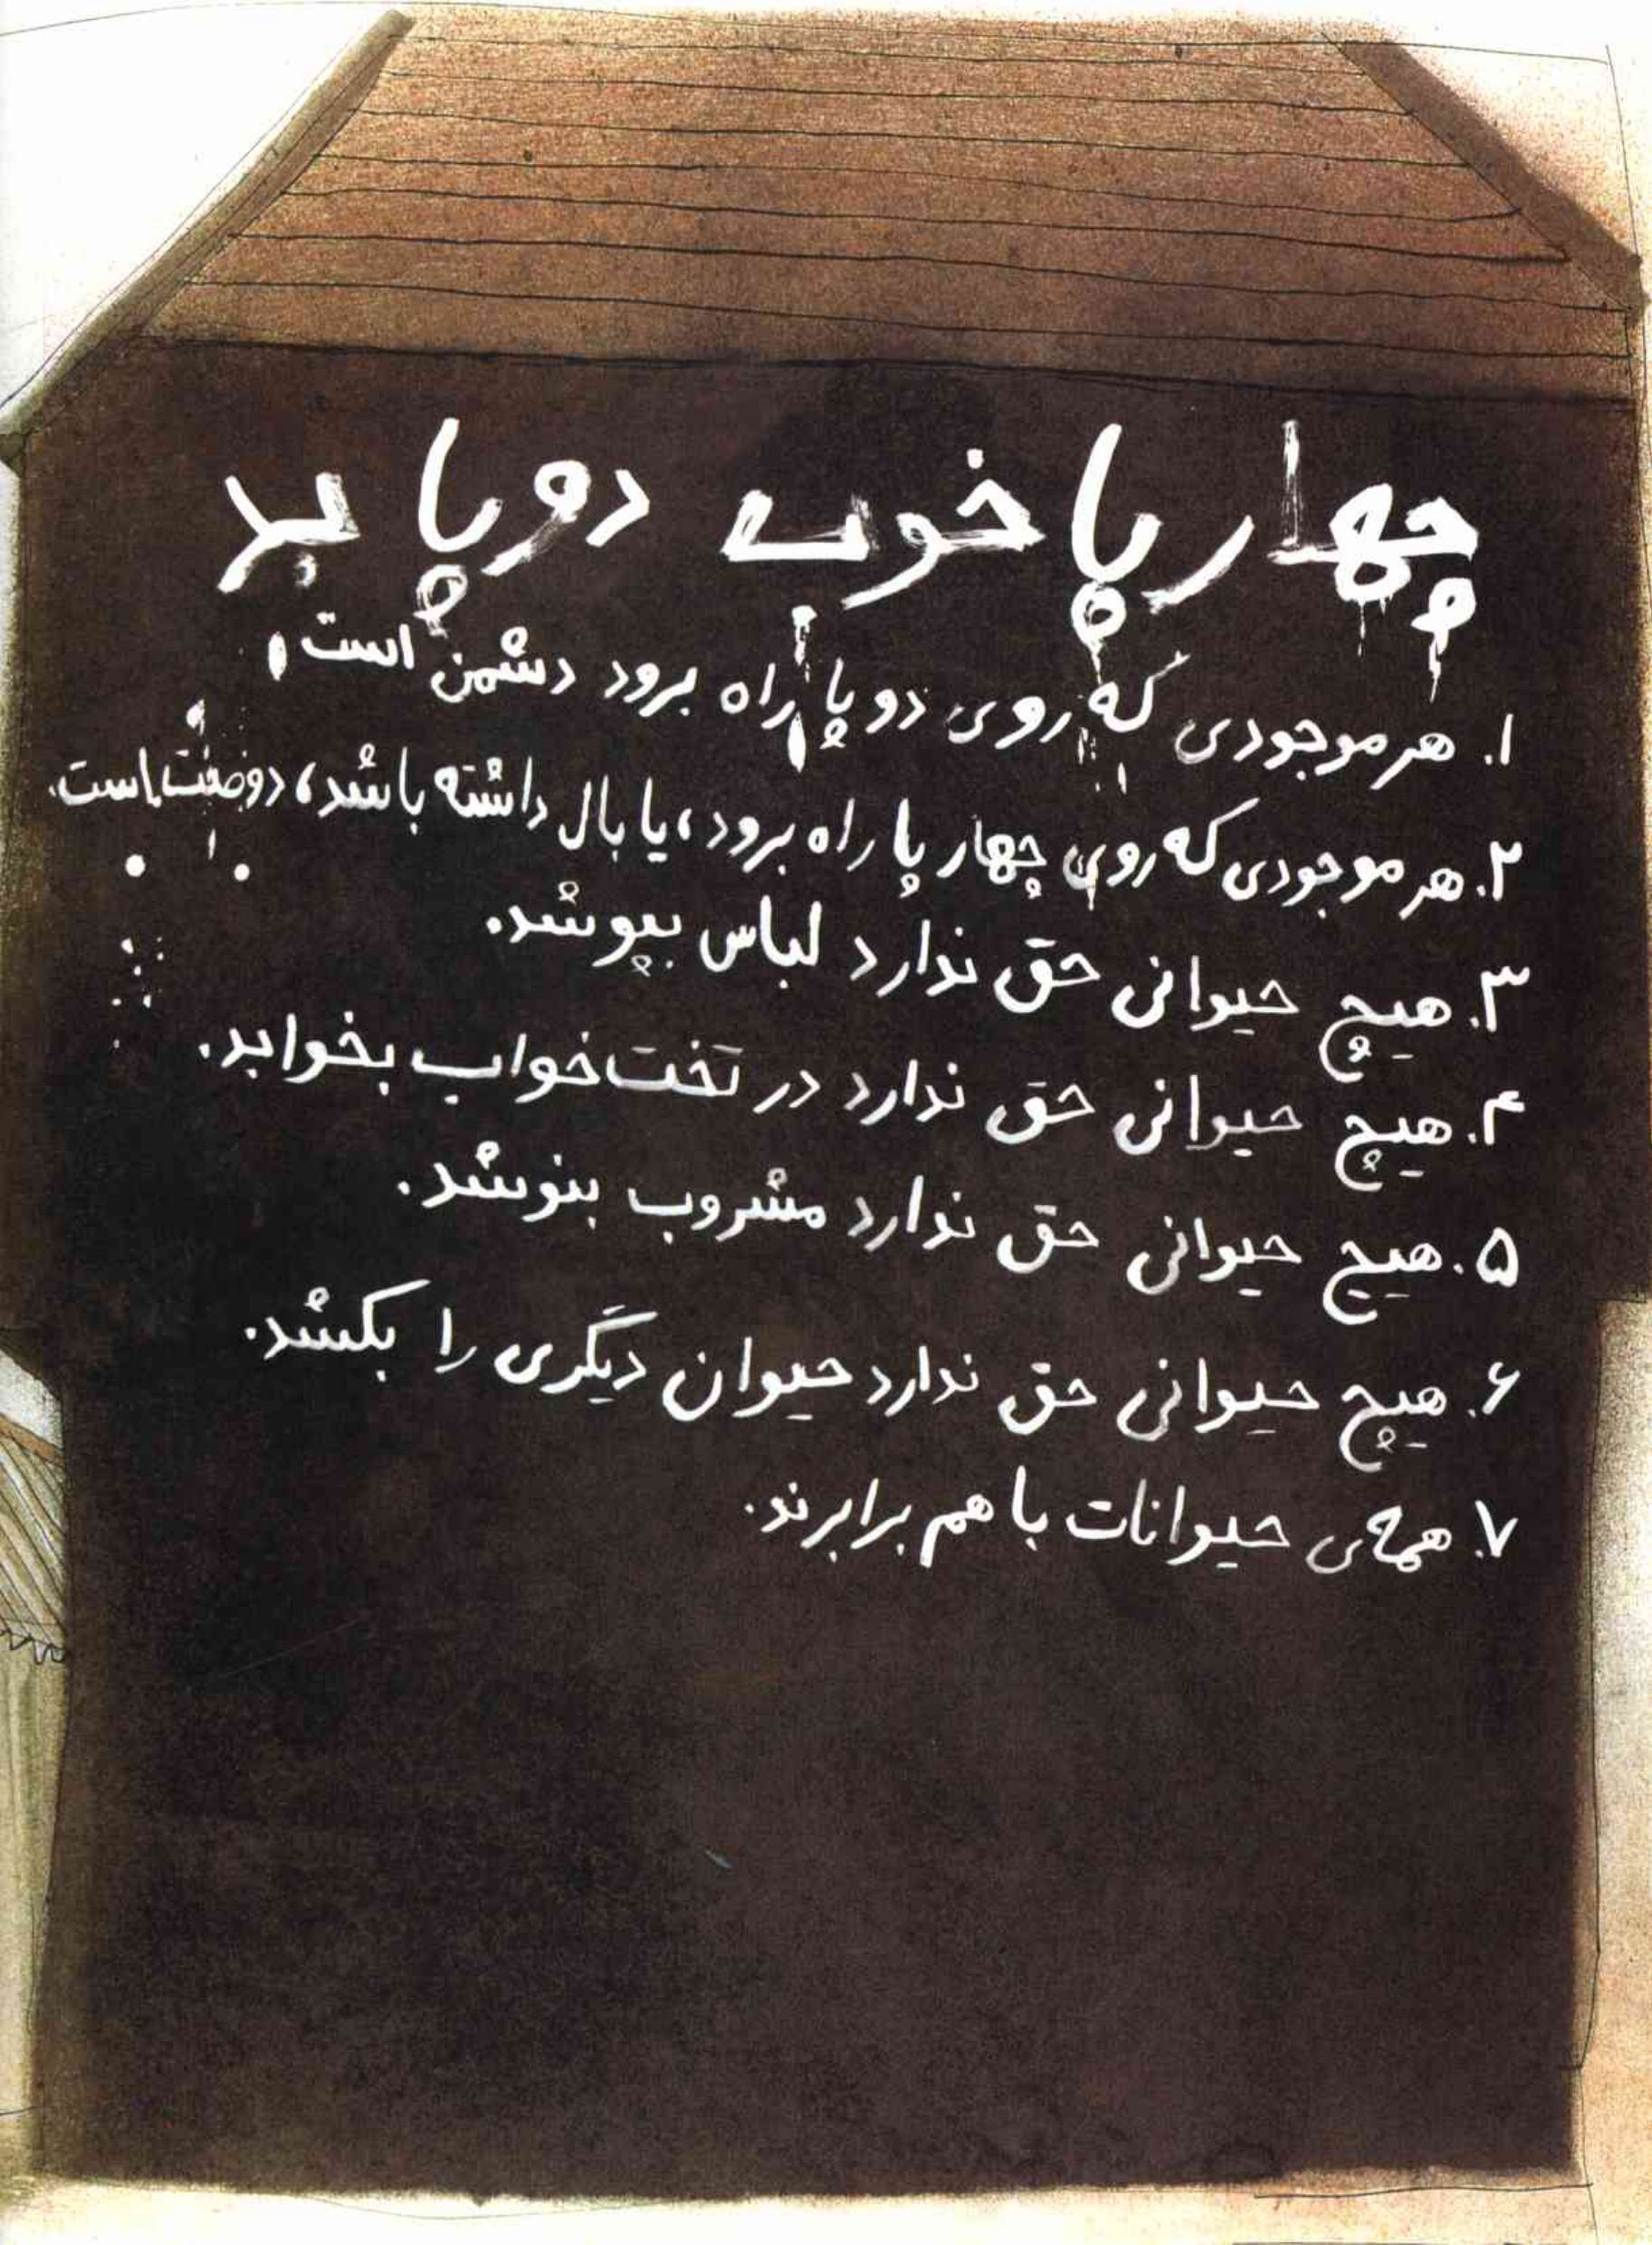 چهارپا خوب دوپا بد
۱. هر موجودی که روی دو پا راه برود دشمن است.
۲. هر موجودی که روی چهار پا راه برود، یا بال داشته باشد، دوصت است.
۳. هیچ حیوانی حق ندارد لباس بپوشد.
۴. هیچ حیوانی حق ندارد در تخت‌خواب بخوابد.
۵. هیچ حیوانی حق ندارد مشروب بنوشد.
۶. هیچ حیوانی حق ندارد حیوان دیگری را بکشد.
۷. همه‌ی حیوانات با هم برابرند.